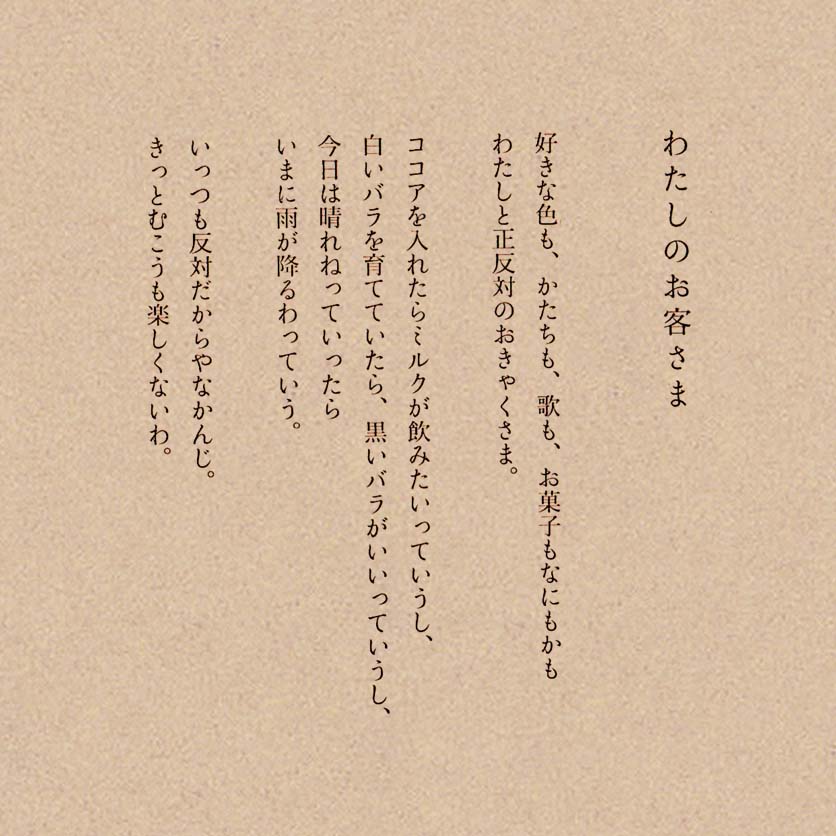 わたしのお客さま
好きな色も、かたちも、歌も、お菓子もなにもかも
わたしと正反対のおきゃくさま。
ココアを入れたらミルクが飲みたいっていうし、
白いバラを育てていたら、黒いバラがいいっていうし、
今日は晴れねっていったら
いまに雨が降るわっていう。
いっつも反対だからやなかんじ。
きっとむこうも楽しくないわ。